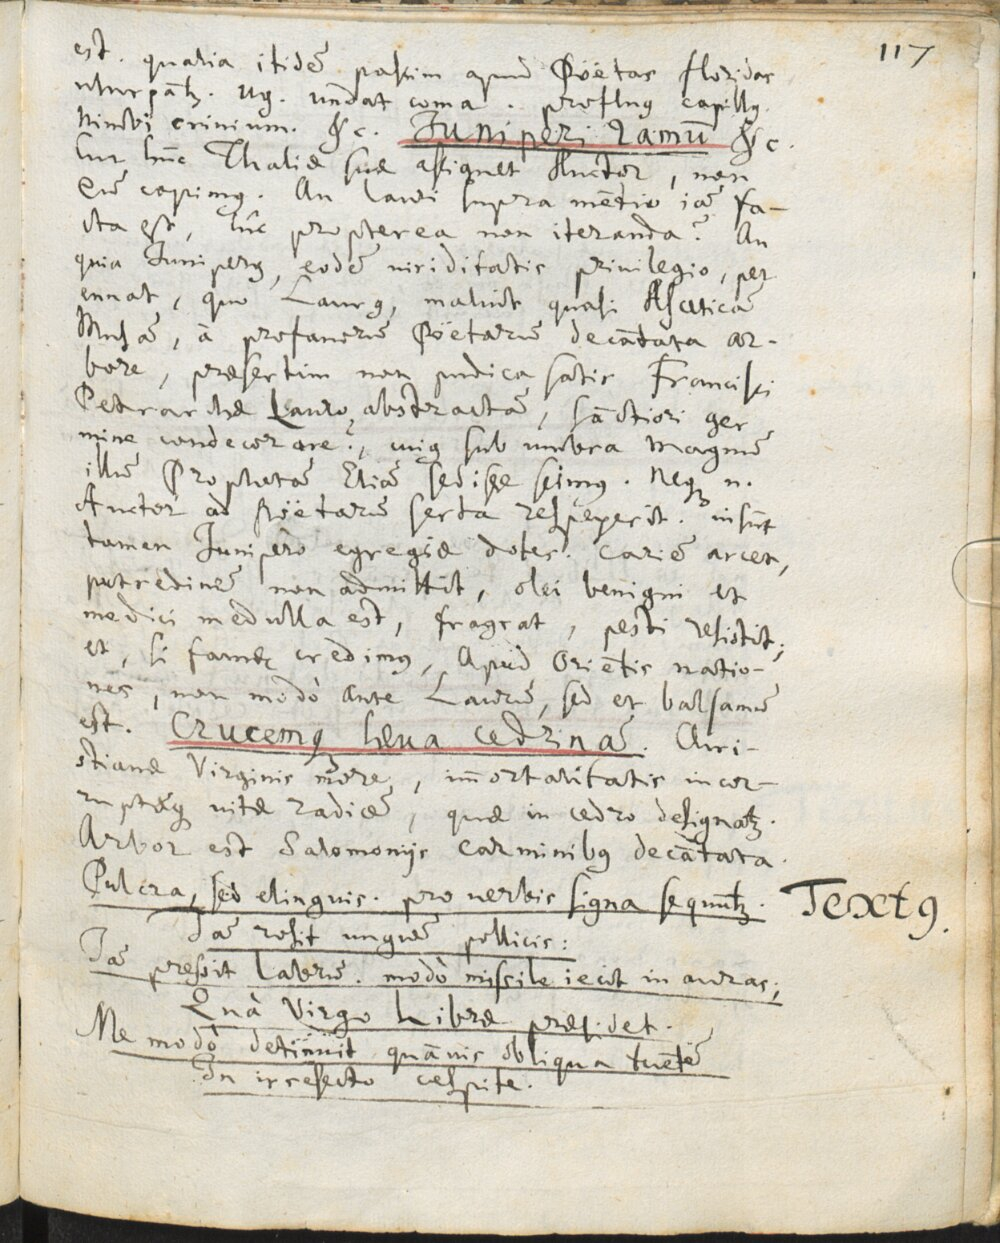 117
est. qualia itidē passim apud Pöetas floridas
usurpāt. ug. undat coma. proflug capillg.
Nimbi crinium. &c. Juniperi ramū &c.
Cur hūc Thaliæ suæ assignet Auctor, non
Eū capimg. An Lauri supra mētio iā fa-
cta est, hîc propterea non iteranda? An
quia Juniperg, eodē uiriditatis priuilegio, per
ennat, quo Laurg, maluit quasi Ascticā
Musā, à profanorū Pöetarū decātata ar-
bore, præsertim non pudica satis Francisci
Petrarchæ Lauro, abstractā, sāctiori ger
mine condecorare?, cuig sub umbra magnū
illū Prophetā Eliā sedisse scimg. Neqз n.
Auctor ad Pöetarū serta respexerit. insūt
tamen Junipero egregiæ dotes. Cariē arcet,
putredinē non admittit, olei benigni et
medici medulla est, fragrat, pesti resistit;
et, si famæ credimg, apud Oriētis natio-
nes, non modò ante Laurū, sed et balsamū
est. Crucemq leua cedrinā. Chri-
stianæ Virginis more, im̄ortalitatis incor-
ruptæq uitæ radicē, quæ in cedro designatз.
Arbor est Salomonijs carminibg decātata.
Pulcra, sed elinguis. pro uerbis signa sequūtз. Textg.
Iā rosit unguē pollicis:
Iā pressit labrū. modò missile iecit in auras;
Quà Virgo Libræ præsidet.
Me modò detinuit, quāuis obliqua tuētē
In irresecto cespite.